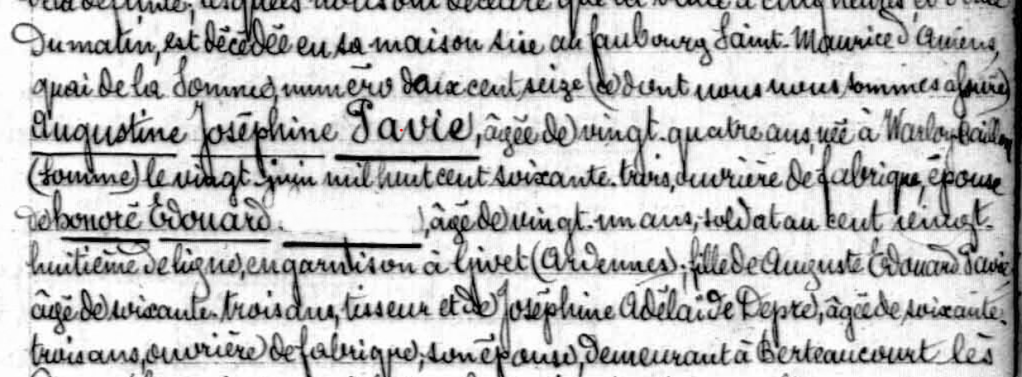 Du matin, est décédée en sa maison sise au faubourg Saint-Maurice d'Amiens,
quai de la Somme, numéro deux cent seize (ce dont nous nous sommes assuré)
Augustine Joséphine Pavie, âgée de vingt-quatre ans, née à Warloy-Baillon
(Somme) le vingt juin mil huit cent soixante-trois, ouvrière de fabrique, épouse
de Honoré Edouard , âgé de vingt-un ans, soldat au cent vingt-
huitième de ligne, en garnison à Givet (Ardennes); fille de Auguste Edouard Pavie
âgé de soixante-trois ans, tisseur et de Joséphine Adélaïde Depré, âgée de soixante-
trois ans, ouvrière de fabrique, son épouse, demeurant à Berteaucourt lès